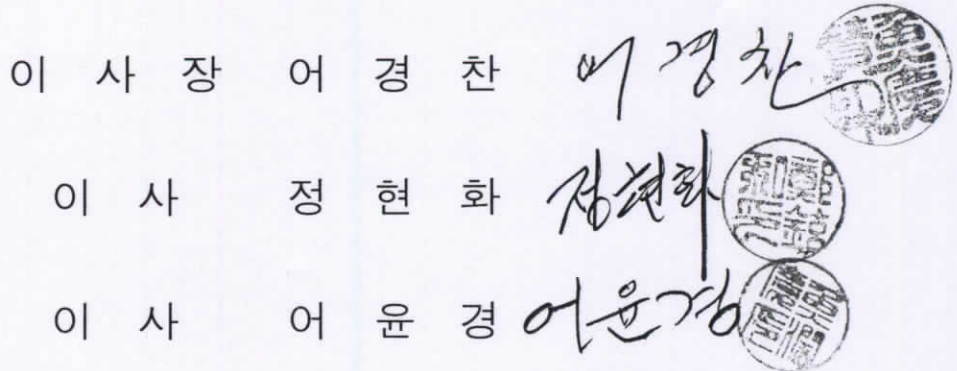 이 사 장 어 경 찬 어 경 찬
이 사 정 현 화 정현화
이 사 어 윤 경 어윤경